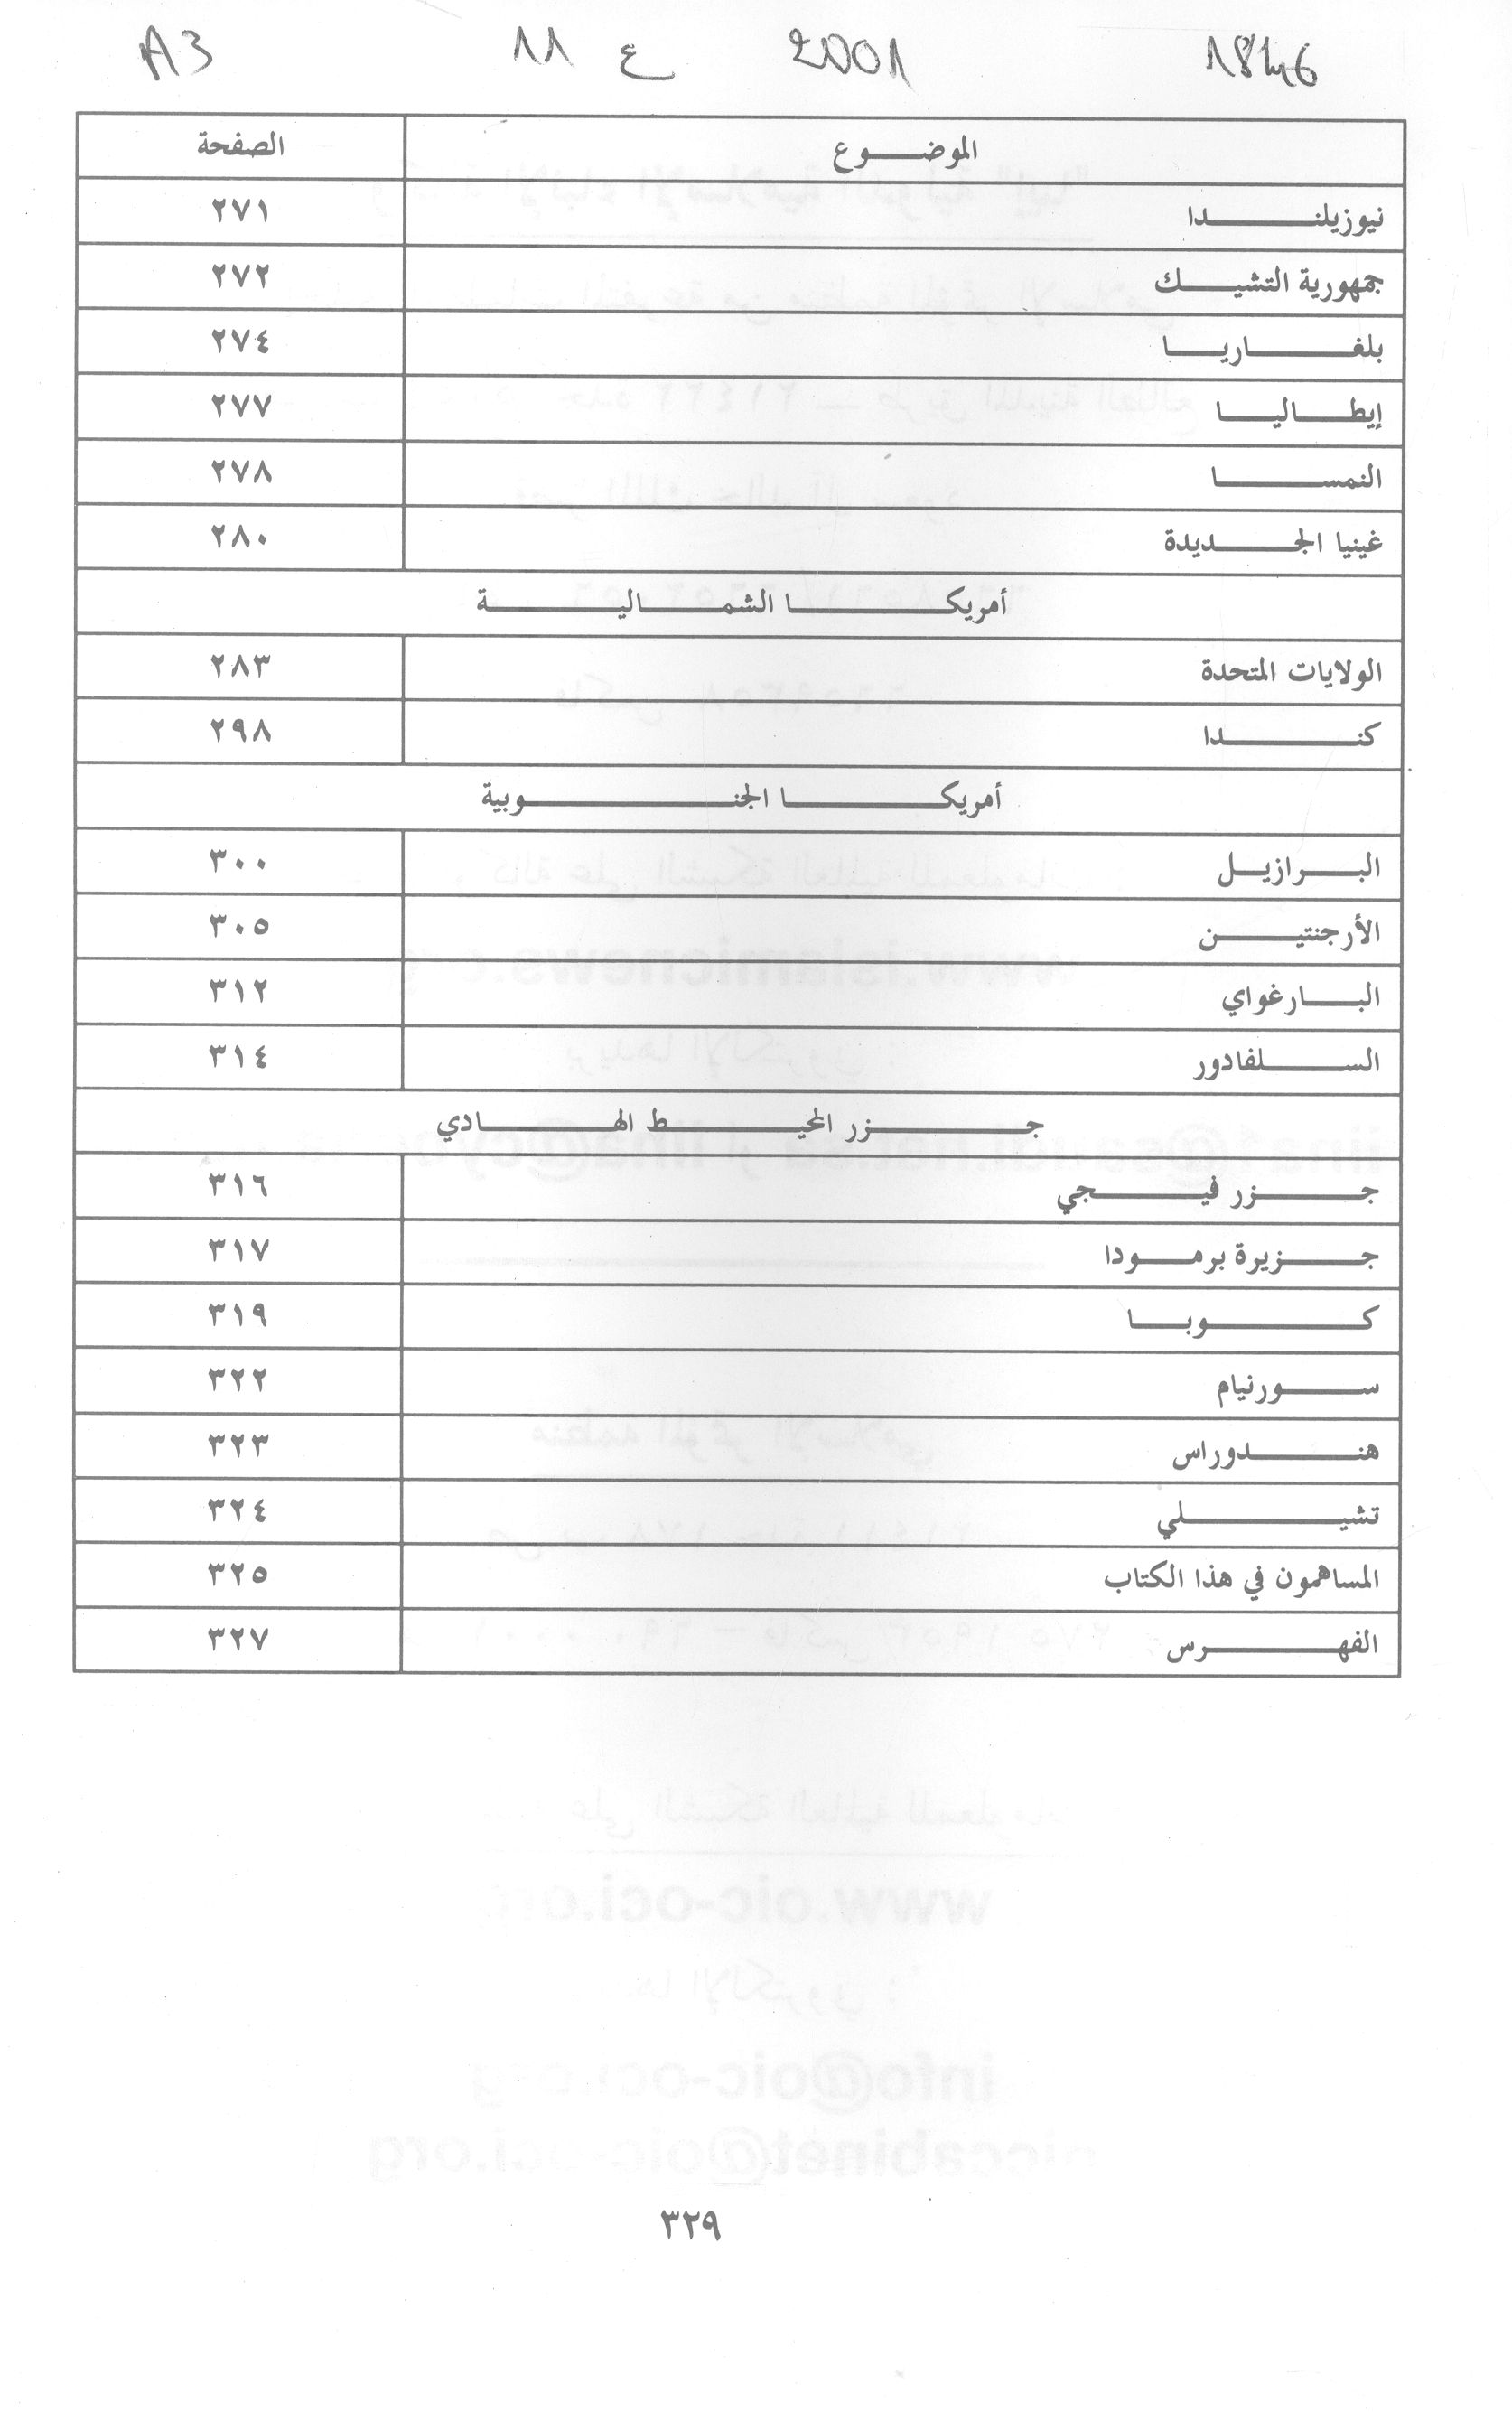 A3 11 ع 2001 1846
الموضوع الصفحة
نيوزيلندا ٢٧١
جمهورية التشيك ٢٧٢
بلغاريا ٢٧٤
إيطاليا ٢٧٧
النمسا ٢٧٨
غينيا الجديدة ٢٨٠
أمريكا الشمالية
الولايات المتحدة ٢٨٣
كندا ٢٩٨
أمريكا الجنوبية
البرازيل ٣٠٠
الأرجنتين ٣٠٥
البارغواي ٣١٢
السلفادور ٣١٤
جزر المحيط الهادي
جزر فيجي ٣١٦
جزيرة برمودا ٣١٧
كوبا ٣١٩
سورنيام ٣٢٢
هندوراس ٣٢٣
تشيلي ٣٢٤
المساهمون في هذا الكتاب ٣٢٥
الفهرس ٣٢٧
٣٢٩